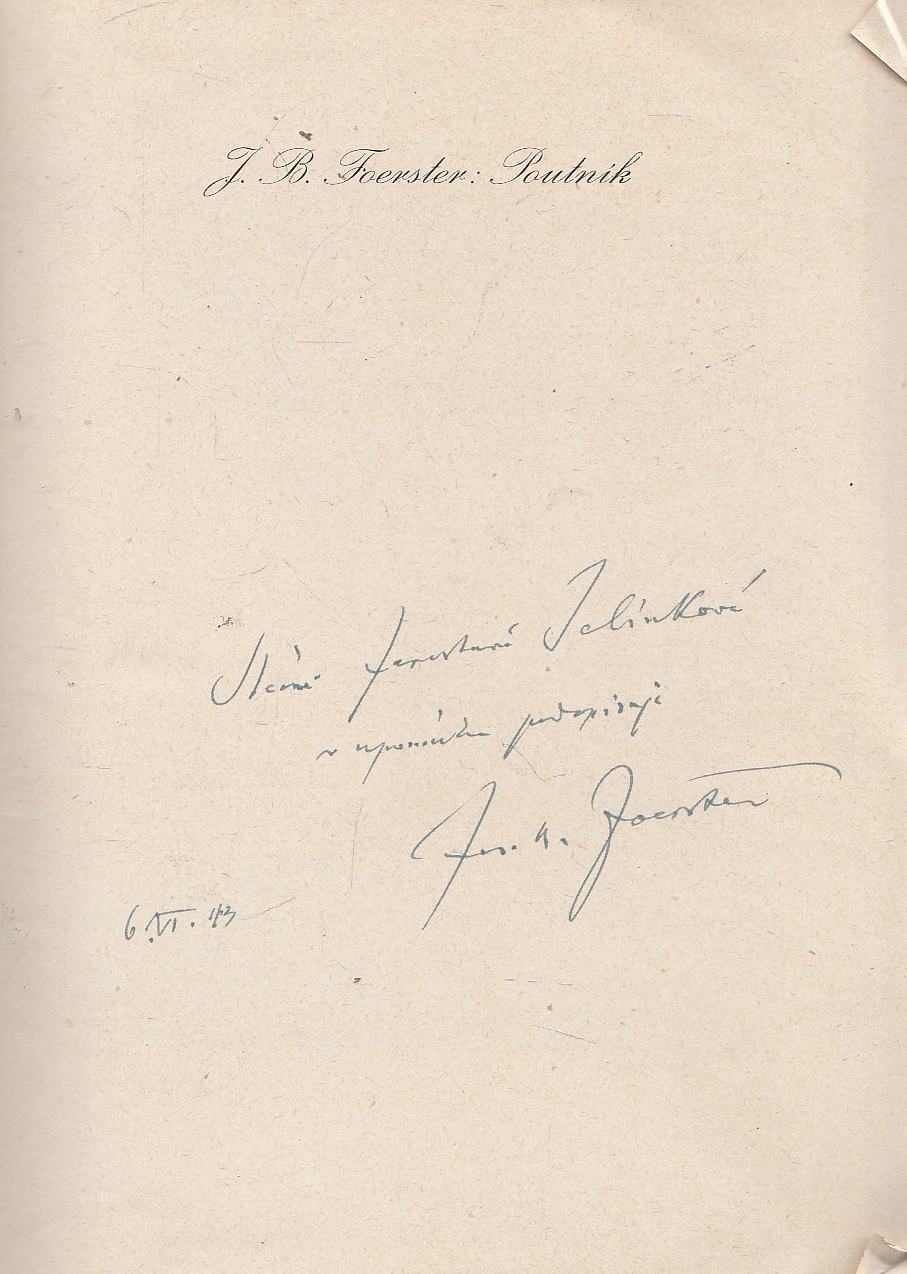 J. B. Foerster: Poutník
Slečně Jaroslavě Jelínkové
v upomínku podpisuje
Jos. B. Foerster
6. VI. 43